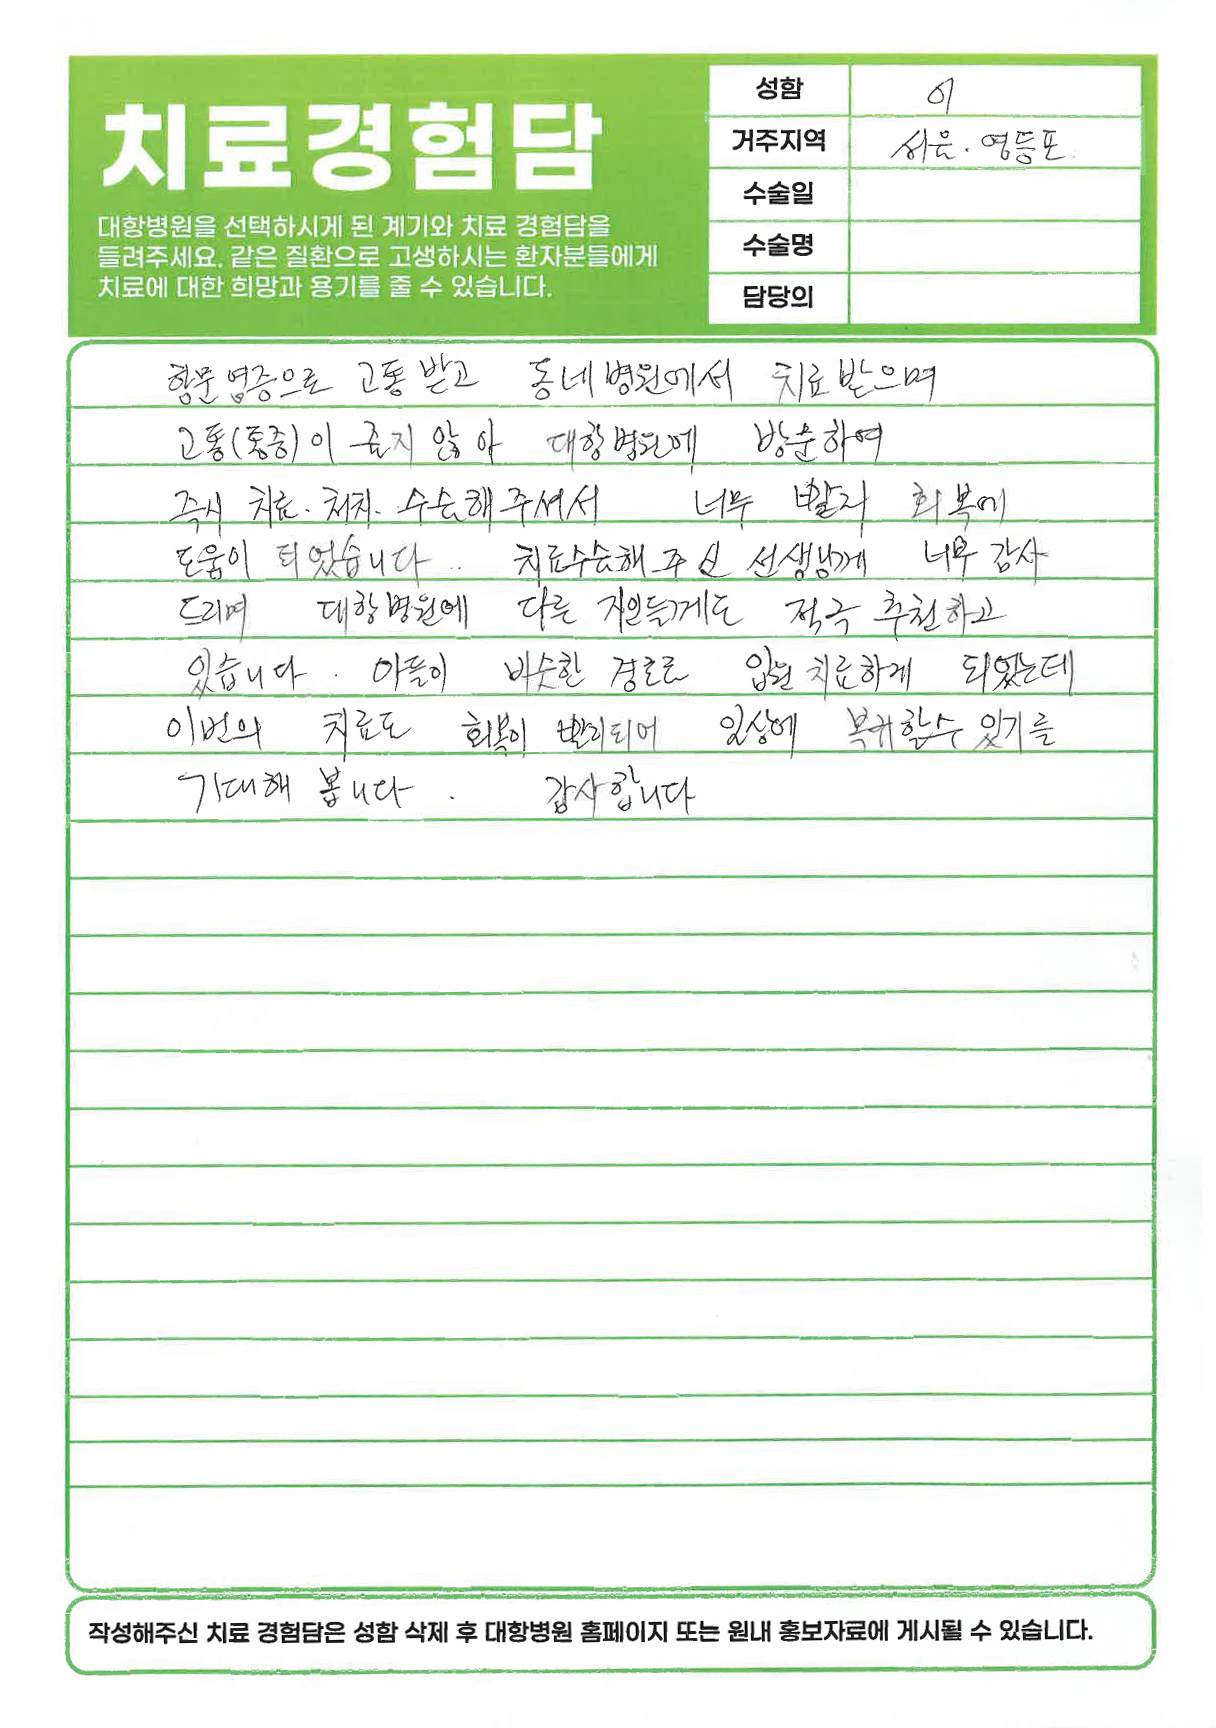 치료경험담
대항병원을 선택하시게 된 계기와 치료 경험담을
들려주세요. 같은 질환으로 고생하시는 환자분들에게
치료에 대한 희망과 용기를 줄 수 있습니다.
성함 이
거주지역 서울. 영등포.
수술일
수술명
담당의
항문 염증으로 고통 받고 동네병원에서 치료 받으며
고통(통증)이 줄지 않아 대항병원에 방문하여
즉시 치료. 처치. 수술해 주셔서 너무 빨리 회복에
도움이 되었습니다.. 치료수술해 주신 선생님께 너무 감사
드리며 대항병원에 다른 지인들께도 적극 추천하고
있습니다. 아들이 비슷한 경로로 입원 치료하게 되었는데
이번의 치료도 회복이 빨리되어 일상에 복귀할수 있기를
기대해 봅니다. 감사합니다
작성해주신 치료 경험담은 성함 삭제 후 대항병원 홈페이지 또는 원내 홍보자료에 게시될 수 있습니다.